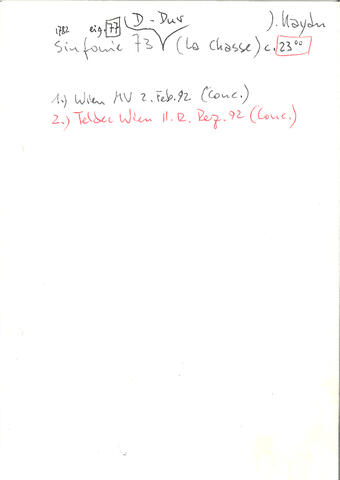 1782 eig. 77 D-Dur J. Haydn
Sinfonie 73 (La Chasse) c. 23⁰⁰
1.) Wien MV 2. Feb. 92 (Conc.)
2.) Teldec Wien 11. 12. Dez. 92 (Conc.)